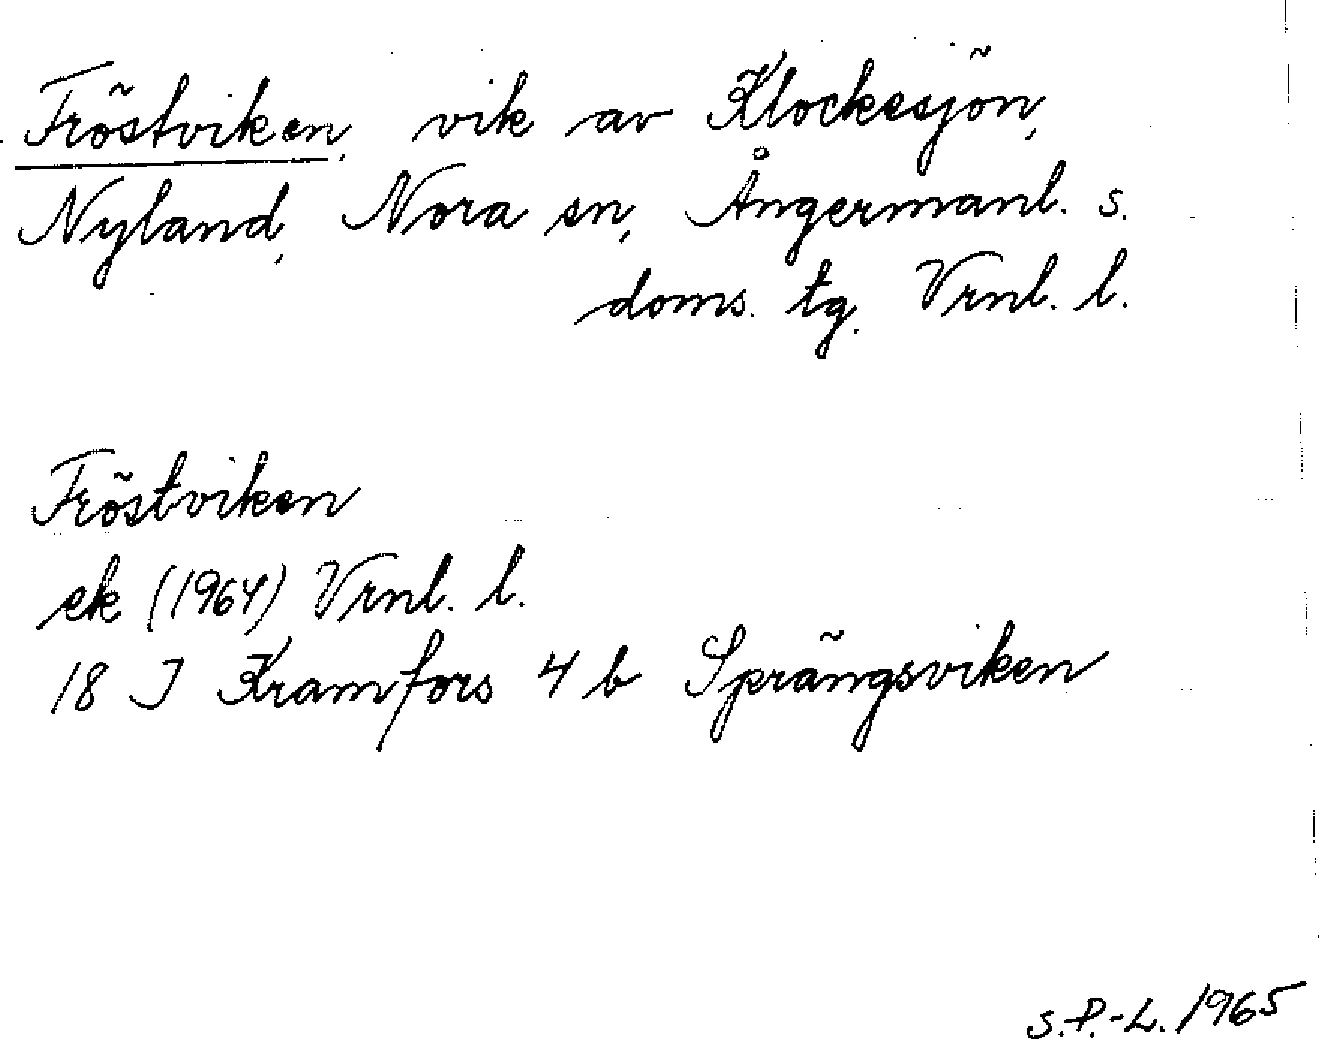 Fröstviken, vik av Klockesjön,
Nyland, Nora sn, Ångermanl. s.
doms. tg. Vrnl. l.
Fröstviken
ek (1964) Vrnl. l.
18 I Kramfors 4 b Sprängsviken
S.P.-L. 1965